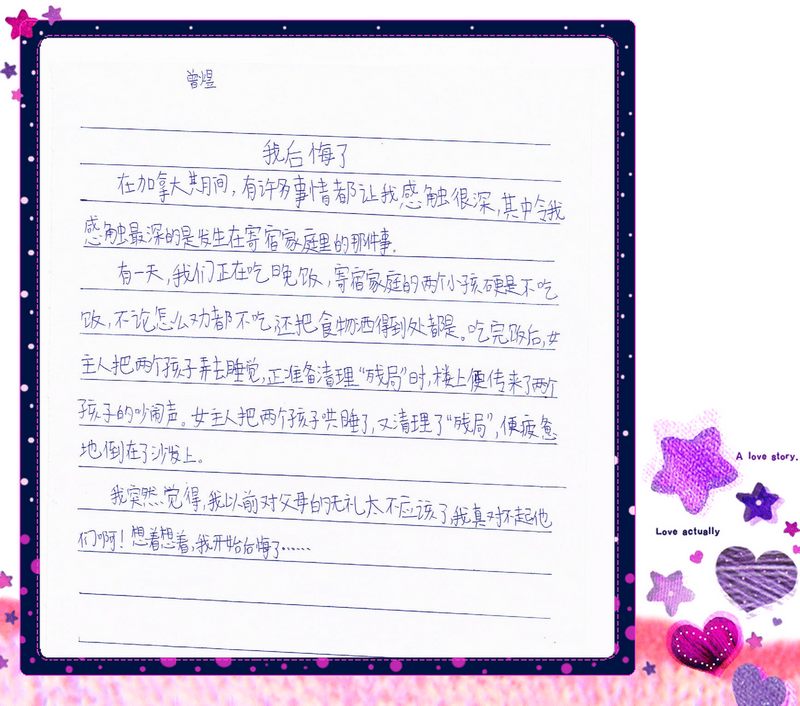 曾煜
我后悔了
在加拿大其间，有许多事情都让我感触很深，其中令我
感触最深的是发生在寄宿家庭里的那件事。
有一天，我们正在吃晚饭，寄宿家庭的两个小孩硬是不吃
饭，不论怎么劝都不吃，还把食物洒得到处都是。吃完饭后，女
主人把两个孩子弄去睡觉，正准备清理“残局”时，楼上便传来了两个
孩子的吵闹声。女主人把两个孩子哄睡了，又清理了“残局”，便疲惫
地倒在了沙发上。
我突然觉得，我以前对父母的无礼太不应该了，我真对不起他
们啊！想着想着，我开始后悔了……
A love story.
Love actually